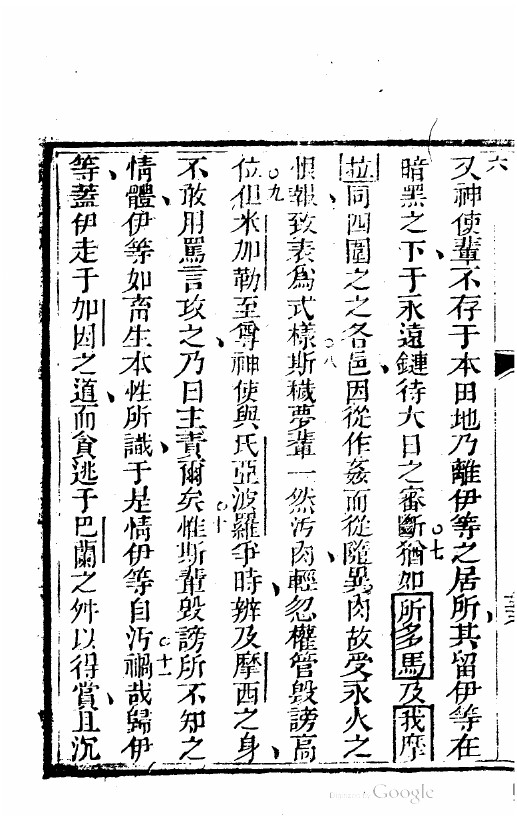 六
又神使輩不存于本田地乃離伊等之居所其留伊等在
暗黑之下于永遠鏈待大日之審斷○七猶如所多馬及我摩
拉同四圍之之各邑因從作姦而從隨異肉故受永火之
恨報致表為式樣○八斯穢夢輩一然污肉輕忽權管毀謗高
位○九但米加勒至尊神使與氏亞波羅爭時辨及摩西之身
不敢用罵言攻之乃曰主責爾矣○十惟斯輩毀謗所不知之
情體伊等如畜生本性所識于是情伊等自污○十一禍哉歸伊
等蓋伊走于加因之道而貪逃于巴蘭之舛以得賞且沉
Digitized by Google